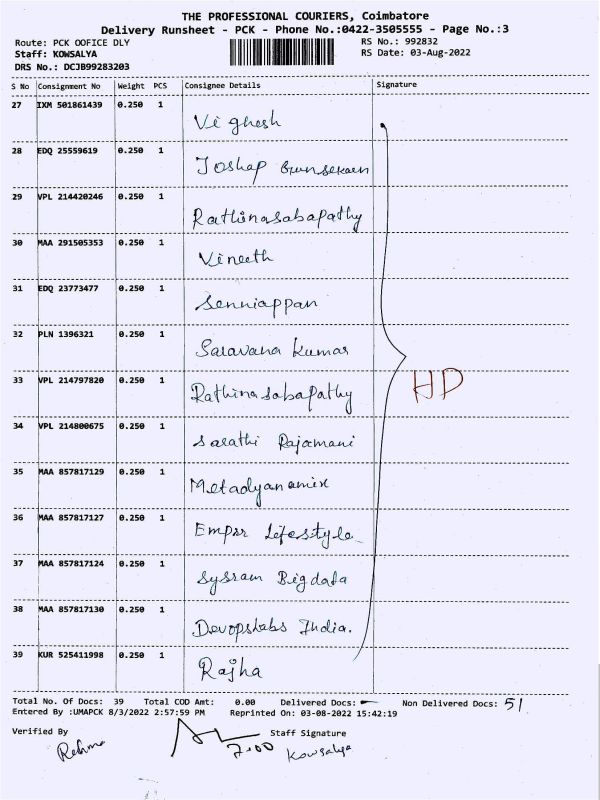 THE PROFESSIONAL COURIERS, Coimbatore
Delivery Runsheet - PCK - Phone No.:0422-3505555 - Page No.:3
Route: PCK OOFICE DLY RS No.: 992832
Staff: KOWSALYA RS Date: 03-Aug-2022
DRS No.: DCJB99283203
S No Consignment No Weight PCS Consignee Details Signature
27 IXM 501861439 0.250 1 Vighesh
28 EDQ 25559619 0.250 1 Joshap
29 VPL 214420246 0.250 1 Rathinasabapathy
30 MAA 291505353 0.250 1 Vineeth
31 EDQ 23773477 0.250 1 Senniappan
32 PLN 1396321 0.250 1 Saravana Kumar
33 VPL 214797820 0.250 1 Rathinasabapathy
HD
34 VPL 214800675 0.250 1 Sarathi Rajamani
35 MAA 857817129 0.250 1 Metadyanamix
36 MAA 857817127 0.250 1 Lifestyle
37 MAA 857817124 0.250 1 Sysram Bigdata
38 MAA 857817130 0.250 1 Devopslabs India.
39 KUR 525411998 0.250 1 Rajha
Total No. Of Docs: 39 Total COD Amt: 0.00 Delivered Docs: — Non Delivered Docs: 51
Entered By :UMAPCK 8/3/2022 2:57:59 PM Reprinted On: 03-08-2022 15:42:19
Verified By Staff Signature
7.00 Kowsalya